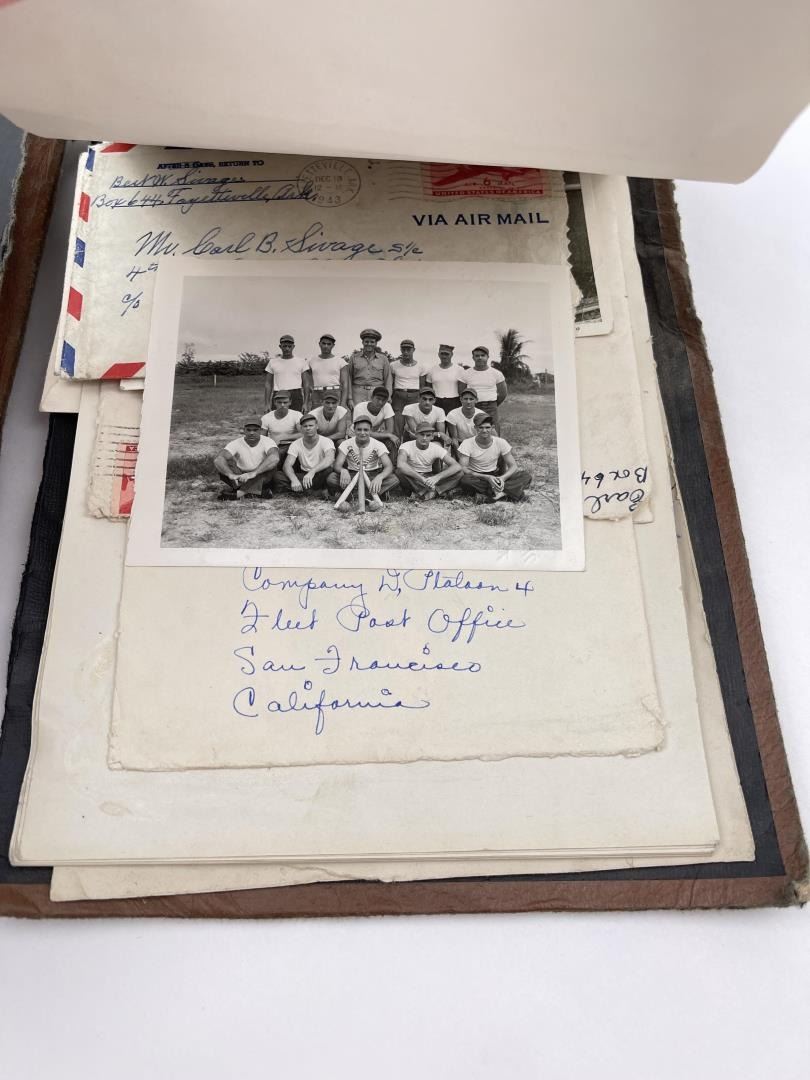 AFTER 5 DAYS, RETURN TO
Bert W. Sivage
Box 644, Fayetteville, Ark.
DEC 13
12 - M
1943
6
UNITED STATES OF AMERICA
VIA AIR MAIL
Mr. Carl B. Sivage S1/c
4th
c/o
Carl
Box 64
Company D, Platoon 4
Fleet Post Office
San Francisco
California